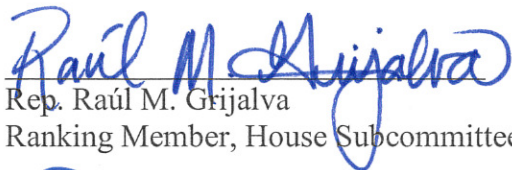 Raúl M. Grijalva
Rep. Raúl M. Grijalva
Ranking Member, House Subcommittee